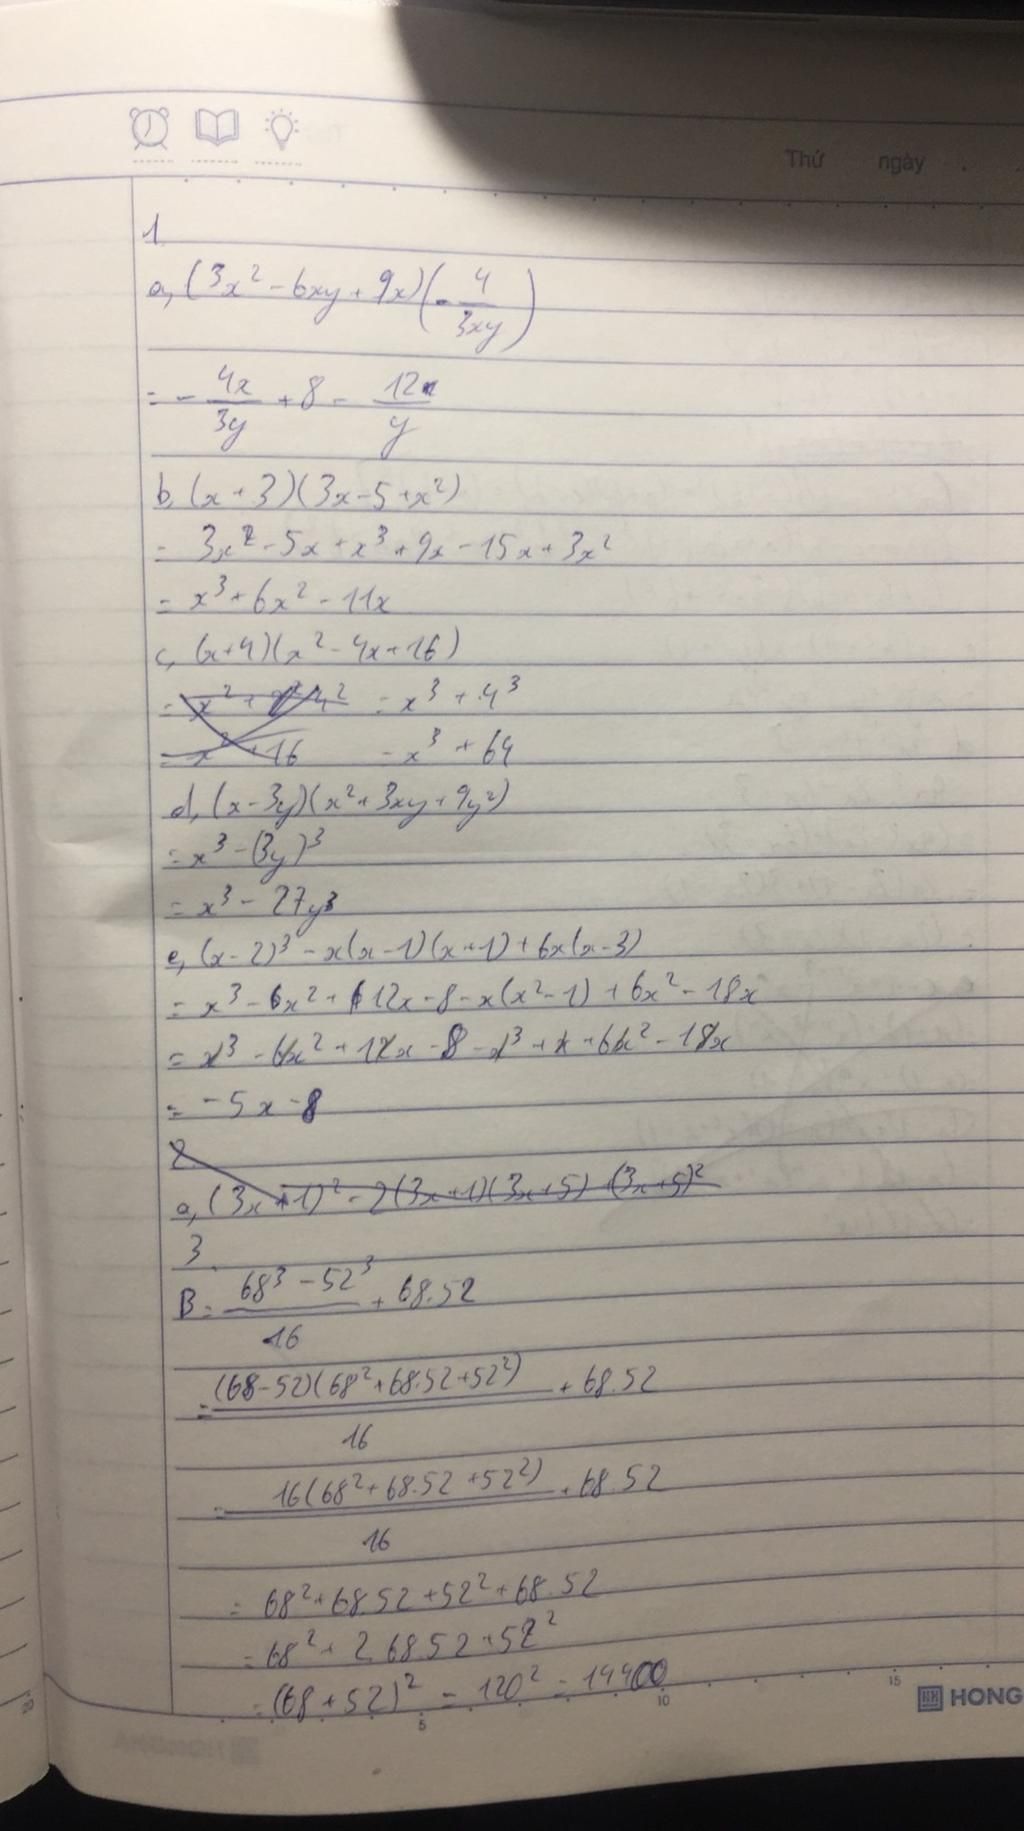 Thứ ngày
1.
a, (3x² - 6xy + 9x)(- 4/3xy)
= - 4x/3y + 8 - 12/y
b, (x + 3)(3x - 5 + x²)
= 3x² - 5x + x³ + 9x - 15x + 3x²
= x³ + 6x² - 11x
c, (x+4)(x² - 4x + 16)
= x³ + 4³
= x³ + 64
d, (x - 3y)(x² + 3xy + 9y²)
= x³ - (3y)³
= x³ - 27y³
e, (x - 2)³ - x(x - 1)(x + 1) + 6x(x - 3)
= x³ - 6x² + 12x - 8 - x(x² - 1) + 6x² - 18x
= x³ - 6x² + 12x - 8 - x³ + x + 6x² - 18x
= -5x - 8
2.
a, (3x + 1)² - 2(3x + 1)(3x + 5) + (3x + 5)²
3.
B = 68³ - 52³/16 + 68.52
= (68 - 52)(68² + 68.52 + 52²)/16 + 68.52
= 16(68² + 68.52 + 52²)/16 + 68.52
= 68² + 68.52 + 52² + 68.52
= 68² + 2.68.52 + 52²
= (68 + 52)² = 120² = 14400
5 10 15
HONG
20